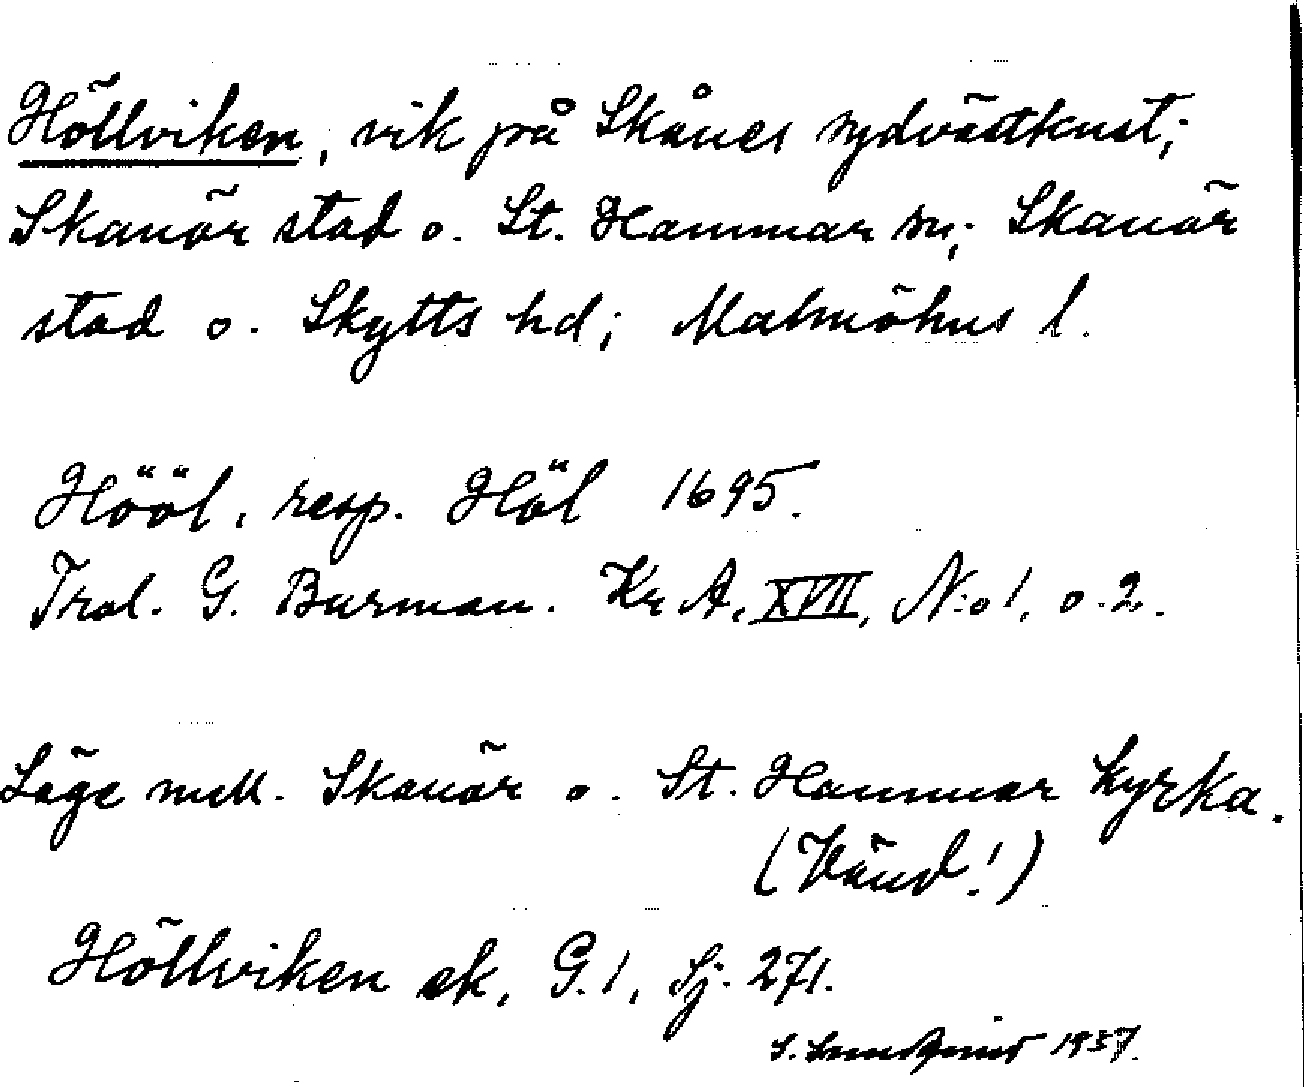 Höllviken, vik på Skånes sydvästkust;
Skanör stad o. St. Hammar sn; Skanör
stad o. Skytts hd; Malmöhus l.
Hööl, resp. Höl 1695.
Trol. G. Burman. Kr A, XVII, N:o 1, o. 2.
Läge mell. Skanör o. St. Hammar kyrka.
(Vänd!)
Höllviken ek, G. 1, Sj. 271.
S. Lundquist 1937.